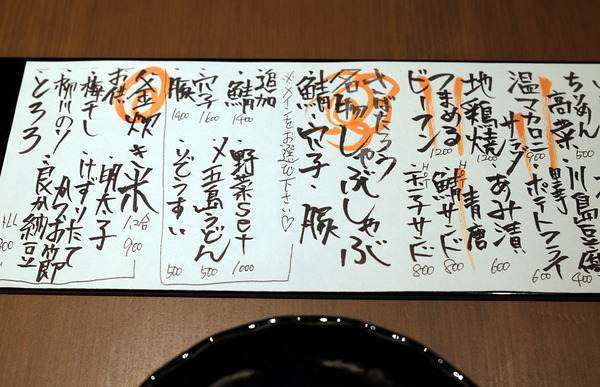 ちゃめん
高菜・川島豆腐
400
温マカロニサラダ
900
ポテトフライ
600
地鶏焼
1200
あみ漬
600
つまめる
HOT 鯖サンド
800
ビーフン
1200
HOT 玉子サンド
800
さばたろう
名物しゃぶしゃぶ
鯖・穴子・豚
※メインをお選び下さい♡
追加
鯖 1400
野菜set 1000
穴子 1600
〆五島うどん 500
豚 1400
ぞうすい 500
釜炊き米 1.2合 900
お供
梅干し・明太子
柳川のり・けずりたてかつお節
とろろ・良か納豆